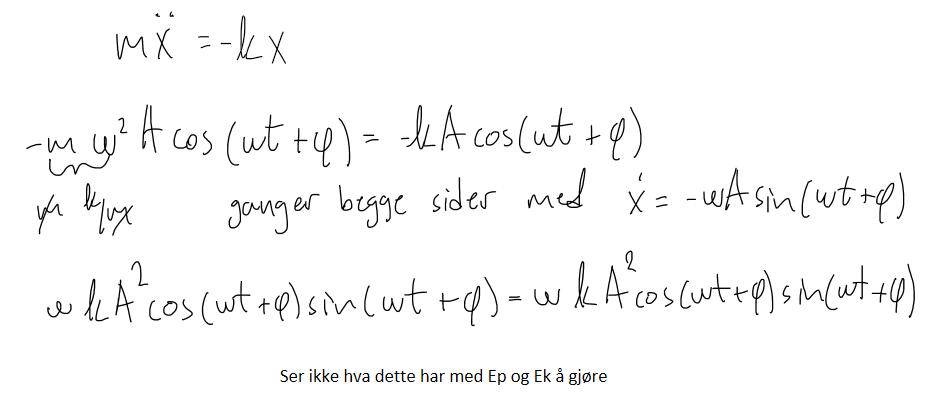 mẍ = -kx
-mω² A cos(ωt + φ) = -kA cos(ωt + φ)
m k/m ganger begge sider med ẋ = -ωA sin(ωt+φ)
ω kA² cos(ωt+φ) sin(ωt+φ) = ω kA² cos(ωt+φ) sin(ωt+φ)
Ser ikke hva dette har med Ep og Ek å gjøre